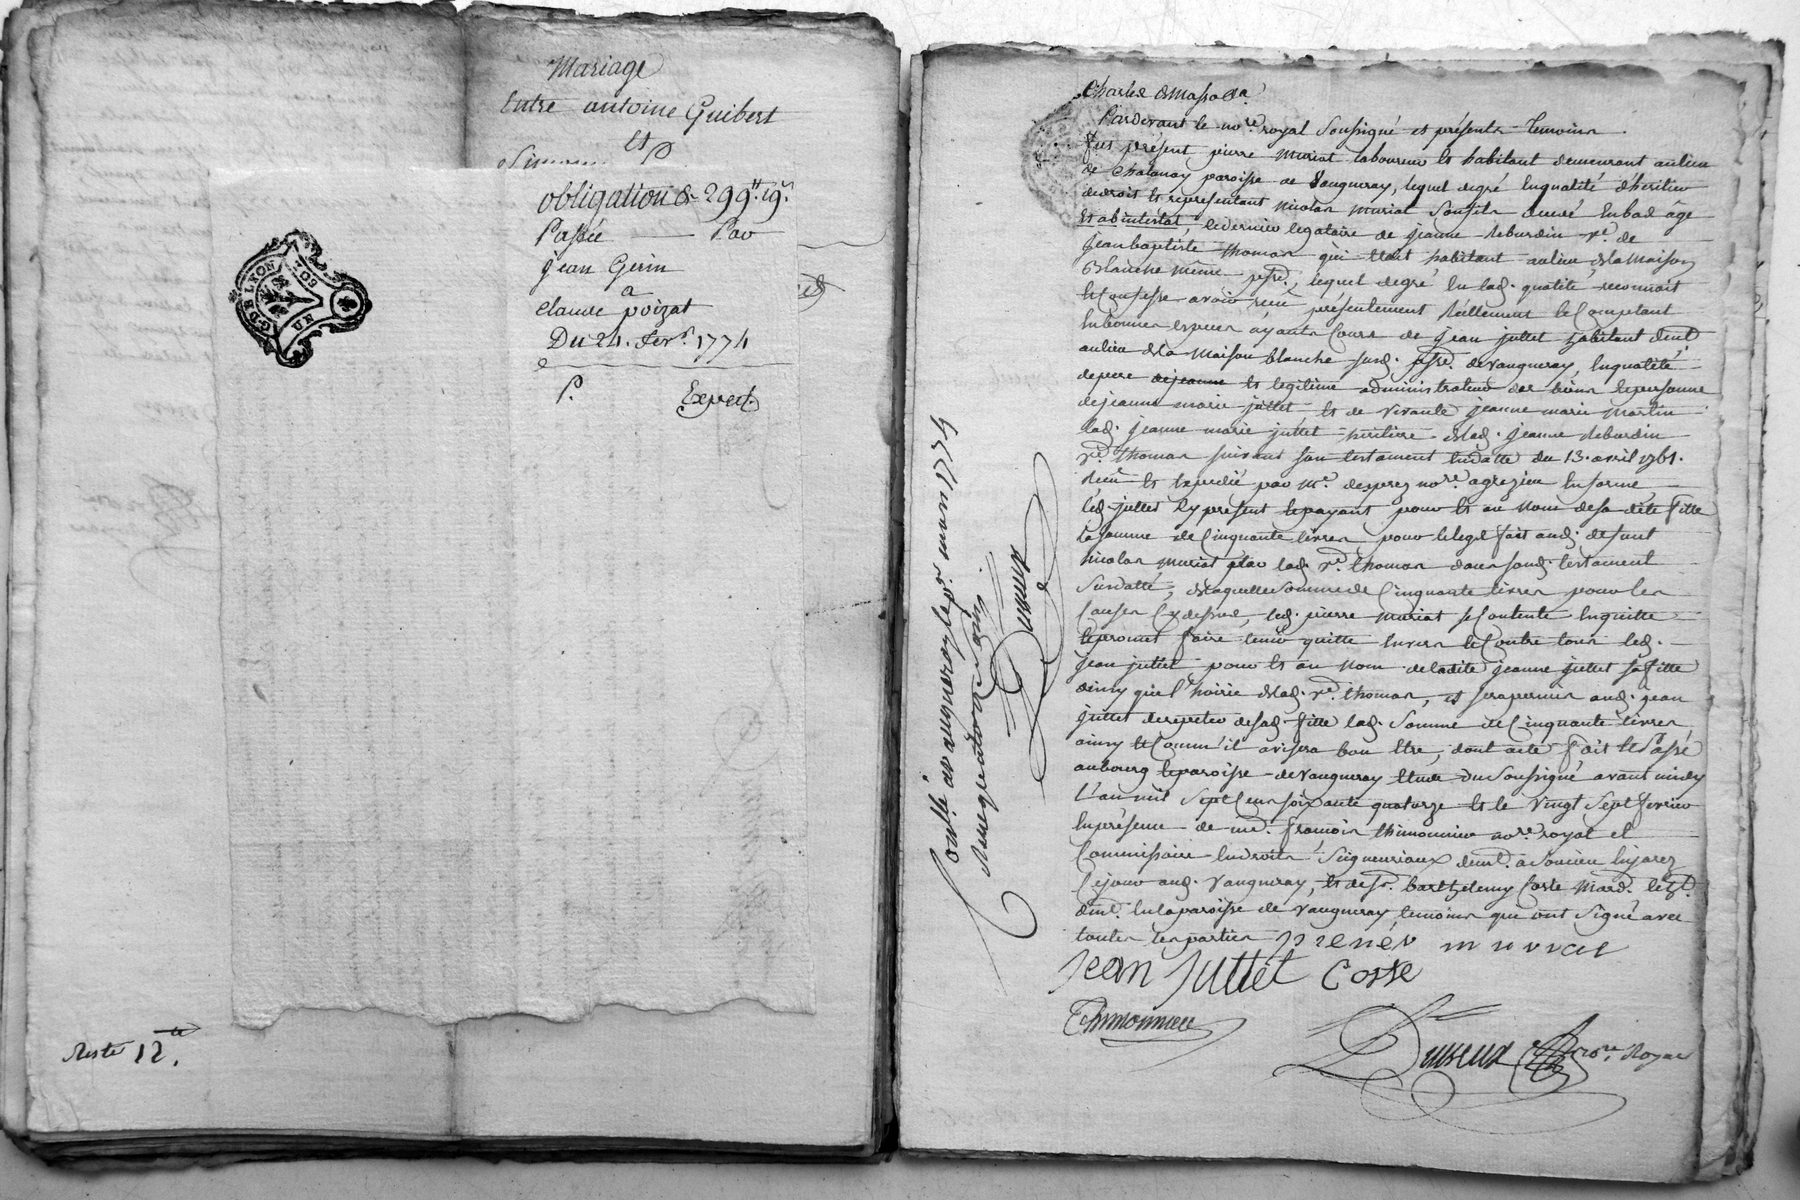 Mariage
Entre antoine Guibert
et
obligation de 299.tt 19.s
Passée Par
jean Gerin
a
Claude poizat
Du 24. fevr. 1774
P. Exped.
G. DE LYON
UN
Reste 12.tt
Par devant le nore. royal soussigné et présents témoins
fut présent pierre muriat laboureur et habitant demeurant au lieu
de Chatanay paroisse de Vaugneray, lequel de gré en qualité d'héritier
de droit et représentant nicolas muriat son fils decedé en bas âge
et abintestat, ce dernier legataire de jeanne deburdin ve. de
jean baptiste thomas qui etoit habitant au lieu de la maison
Blanche même psse, lequel de gré en lad. qualité reconnait
et Confesse avoir reçu présentement réellement et Comptant
en bonnes especes ayants Cours de jean juttet habitant demt.
au lieu de la Maison blanche susd. psse. de Vaugneray, en qualité
de pere et legitime administrateur des biens et personne
de jeanne marie juttet et de vivante jeanne marie martin
lad. jeanne marie juttet héritiere de lad. jeanne deburdin
ve. thomas suivant son testament en datte du 13. avril 1761.
reçu et expedié par Me. desprez nore. en forme
led. juttet ici présent et payant pour et au nom de sa dite fille
la somme de Cinquante livres pour le legs fait aud. defunt
nicolas muriat par lad. ve. thomas dans sond. testament
susdatté, de laquelle somme de Cinquante livres pour les
Causes cy dessus, led. pierre muriat se Contente en quitte
et promet faire tenir quitte envers et Contre tous led.
jean juttet pour et au nom de ladite jeanne juttet sa fille
ainsy que l'hoirie de lad. ve. thomas, et sera permis aud. jean
juttet de repeter de sad. fille lad. somme de Cinquante livres
ainsy et Comm'il avisera bon etre, dont acte fait et Passé
au bourg et paroisse de vaugneray etude du soussigné avant midy
L'an mil sept Cent soixante quatorze et le vingt sept fevrier
en présence de me. françois thimonnier nore. royal et
Commissaire en droits seigneuriaux demt. à Soucieu en jarez
de sr. barthelemy Coste
demt. en la paroisse de vaugneray, temoins qui ont signé avec
toutes les parties
jean juttet Coste
Thimonnier
nore. Royal
Conllé a vaugneray le pr. mars 1774